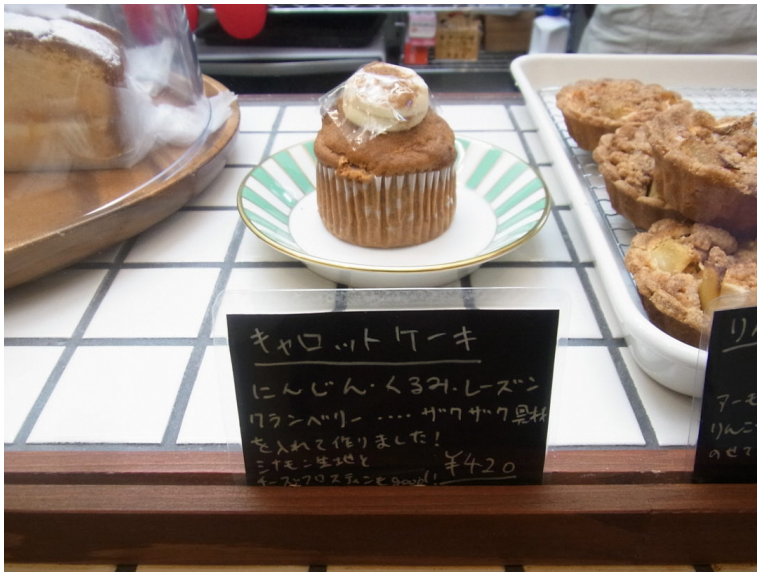 キャロットケーキ
にんじん・くるみ・レーズン
クランベリー・・・・ザクザク具材
を入れて作りました!
シナモン生地と
チーズフロスティングgood!
¥420
アーモ
りんご
のせて